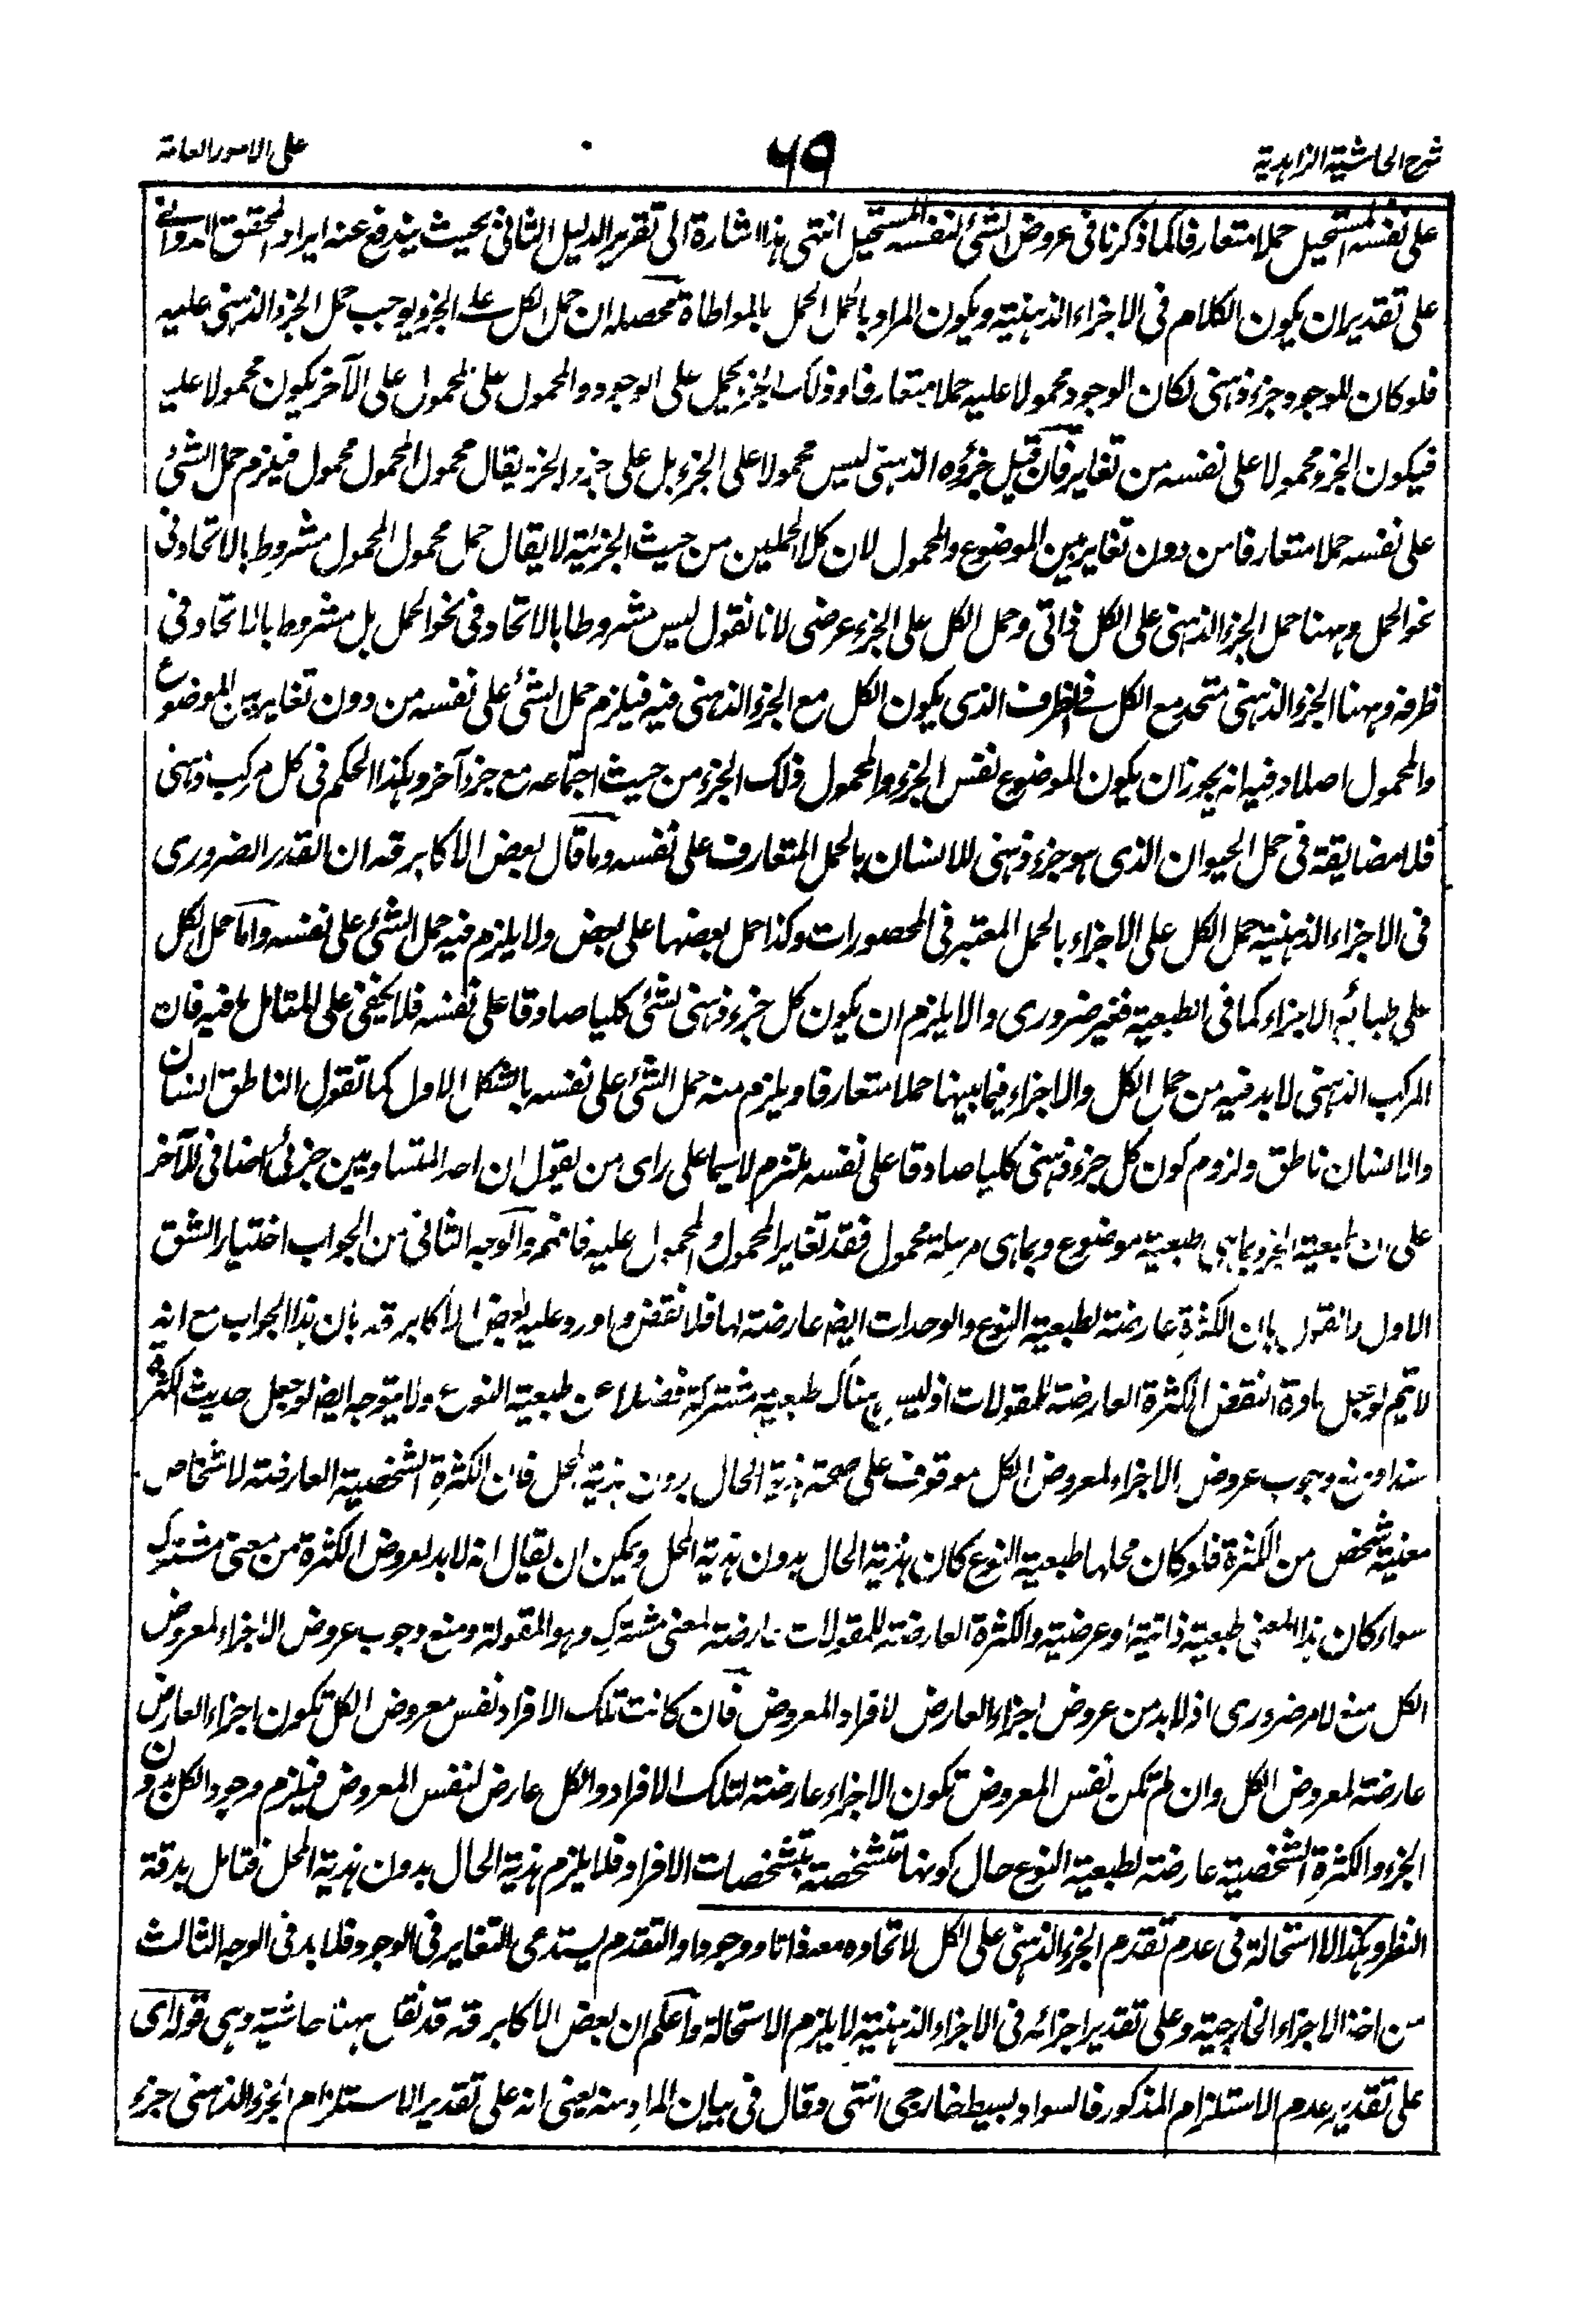 شرح الحاشية الزاهدية
٦٩
على الامور العامة
على نفسه المستحيل حملا متعارفا كما ذكرنا فى عروض الشئ لنفسه المستحيل انتهى هذا اشارة الى تقرير الدليل الثانى بحيث يندفع عنه ايراد المحقق الدوانى
على تقدير ان يكون الكلام فى الاجزاء الذهنية ويكون المراد بالحمل الحمل بالمواطاة محصله ان حمل الكل على الجزء يوجب حمل الجزء الذهنى عليه
فلو كان للوجود جزء ذهنى لكان الوجود محمولا عليه حملا متعارفا وذلك الجزء يحمل على الوجود والمحمول على المحمول على الآخر يكون محمولا عليه
فيكون الجزء محمولا على نفسه من تغاير فان قيل جزؤه الذهنى ليس محمولا على الجزء بل على جزء الجزء يقال محمول المحمول محمول فيلزم حمل الشئ
على نفسه حملا متعارفا من دون تغاير بين الموضوع والمحمول لان كلا الحملين من حيث الجزئية لا يقال حمل محمول المحمول مشروط بالاتحاد فى
نحو الحمل وههنا حمل الجزء الذهنى على الكل ذاتى وحمل الكل على الجزء عرضى لانا نقول ليس مشروطا بالاتحاد فى نحو الحمل بل مشروط بالاتحاد فى
ظرفه وههنا الجزء الذهنى متحد مع الكل فى الظرف الذى يكون الكل مع الجزء الذهنى فيه فيلزم حمل الشئ على نفسه من دون تغاير بين الموضوع
والمحمول اصلا وفيه انه يجوز ان يكون الموضوع نفس الجزء والمحمول ذلك الجزء من حيث اجتماعه مع جزء آخر وهكذا الحكم فى كل مركب ذهنى
فلا مضايقة فى حمل الحيوان الذى هو جزء ذهنى للانسان بالحمل المتعارف على نفسه وما قال بعض الاكابر قد ان القدر الضرورى
فى الاجزاء الذهنية حمل الكل على الاجزاء بالحمل المعتبر فى المحصورات وكذا حمل بعضها على بعض ولا يلزم فيه حمل الشئ على نفسه واما حمل الكل
على طبائع الاجزاء كما فى الطبعية فغير ضرورى والا يلزم ان يكون كل جزء ذهنى لشئ كليا صادقا على نفسه فلا يخفى على المتامل ما فيه فان
المركب الذهنى لا بد فيه من حمل الكل والاجزاء فيما بينها حملا متعارفا ويلزم منه حمل الشئ على نفسه بالشكل الاول كما تقول الناطق انسان
والانسان ناطق ولزوم كون كل جزء ذهنى كليا صادقا على نفسه ملتزم لا سيما على راى من يقول ان احد المتساويين جزئى اضافى للآخر
على ان طبعية الجزء بما هى طبعية موضوع وبما هى مرسلة محمول فقد تغاير المحمول والمحمول عليه فافهم والوجه الثانى من الجواب اختيار الشق
الاول والقول بان الكثرة عارضة لطبعية النوع والوحدات ايضا عارضة لها فلا نقض واورد عليه بعض الاكابر قد بان هذا الجواب مع انه
لا يتم لو جعل مادة النقض الكثرة العارضة للمقولات اذ ليس هناك طبعية مشتركة فضلا عن طبعية النوع ولا يتوجه ايضا لو جعل حديث الكثرة
سندا ومنع وجوب عروض الاجزاء لمعروض الكل موقوف على صحة هذية الحال بدون هذية المحل فان الكثرة الشخصية العارضة لاشخاص
معنية شخص من الكثرة فلو كان محلها طبعية النوع كان هذية الحال بدون هذية المحل ويمكن ان يقال انه لا بد لعروض الكثرة من معنى مشترك
سواء كان هذا المعنى طبعية ذاتية او عرضية والكثرة العارضة للمقولات عارضة لمعنى مشترك وهو المقولة ومنع وجوب عروض الاجزاء لمعروض
الكل منع لامر ضرورى اذ لا بد من عروض اجزاء العارض لافراد المعروض فان كانت تلك الافراد نفس معروض الكل تكون اجزاء العارض
عارضة لمعروض الكل وان لم تكن نفس المعروض تكون الاجزاء عارضة لتلك الافراد والكل عارض لنفس المعروض فيلزم وجود الكل بدون
الجزء والكثرة الشخصية عارضة لطبعية النوع حال كونها متشخصة بتشخصات الافراد فلا يلزم هذية الحال بدون هذية المحل فتامل بدقة
النظر وهكذا لا استحالة فى عدم تقدم الجزء الذهنى على الكل لاتحاده معه ذاتا ووجودا والتقدم يستدعى التغاير فى الوجود فلا بد فى الوجه الثالث
من اخذ الاجزاء الخارجية وعلى تقدير اجزائه فى الاجزاء الذهنية لا يلزم الاستحالة واعلم ان بعض الاكابر قد قد نقل ههنا حاشية وهى قوله اى
على تقدير عدم الاستلزام المذكور فالسواد بسيط خارجى انتهى وقال فى بيان المراد منه يعنى انه على تقدير الاستلزام الجزء الذهنى جزء